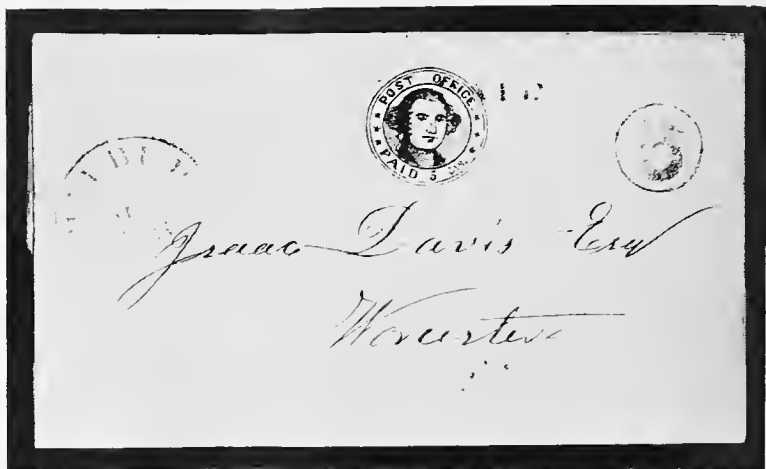 POST OFFICE
PAID 5
5
Isaac Davis Esq
Worcester